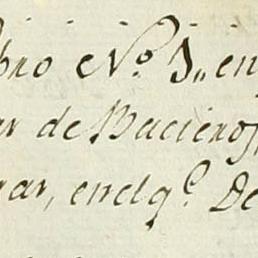 bro Nº 1,, en
ar de Bacieros,
rar, en el q.^e De